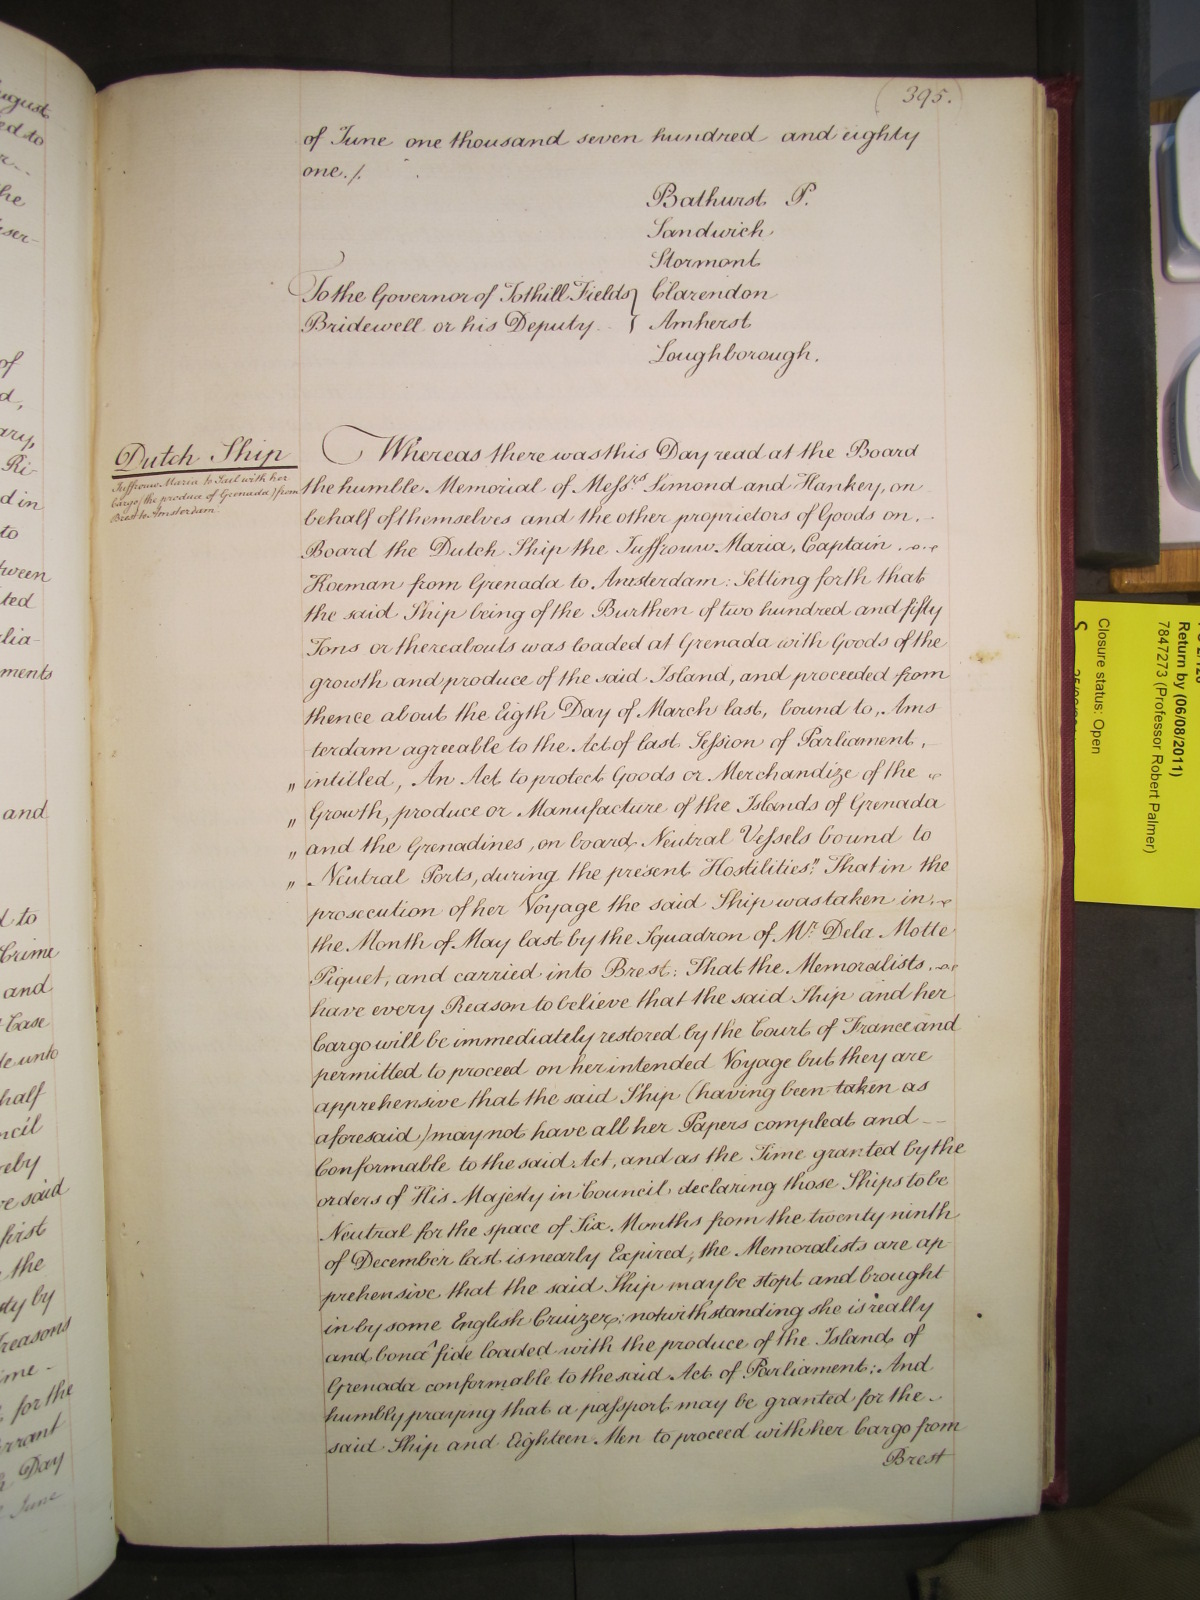 395.
of June one thousand seven hundred and eighty
one./.
Bathurst P.
Sandwich
Stormont
To the Governor of Tothill Fields } Clarendon
Bridewell or his Deputy } Amherst
Loughborough.
Dutch Ship
Juffrouw Maria to Sail with her
Cargo (the produce of Grenada) from
Brest to Amsterdam
Whereas there was this Day read at the Board
the humble Memorial of Messrs. Simond and Hankey, on
behalf of themselves and the other proprietors of Goods on
Board the Dutch Ship the Juffrouw Maria, Captain
from Grenada to Amsterdam: Setting forth that
the said Ship being of the Burthen of two hundred and fifty
Tons or thereabouts was loaded at Grenada with Goods of the
growth and produce of the said Island, and proceeded from
thence about the Eigth Day of March last, bound to, Ams
terdam agreeable to the Act of last Session of Parliament,
" intitled, An Act to protect Goods or Merchandize of the
" Growth, produce or Manufacture of the Islands of Grenada
" and the Grenadines, on board Neutral Vessels bound to
" Neutral Ports, during the present Hostilities": That in the
prosecution of her Voyage the said Ship was taken in
the Month of May last by the Squadron of Mr. Dela Motte
Piquet, and carried into Brest: That the Memoralists
have every Reason to believe that the said Ship and her
Cargo will be immediately restored by the Court of France and
permitted to proceed on her intended Voyage but they are
apprehensive that the said Ship (having been taken as
aforesaid) may not have all her Papers compleat and
Conformable to the said Act, and as the Time granted by the
orders of His Majesty in Council declaring those Ships to be
Neutral for the space of Six Months from the twenty ninth
of December last is nearly Expired, the Memoralists are ap-
prehensive that the said Ship may be stopt and brought
in by some English Cruizer, notwithstanding she is really
and bona fide loaded with the produce of the Island of
Grenada conformable to the said Act of Parliament: And
humbly praying that a passport may be granted for the
said Ship and Eighteen Men to proceed with her Cargo from
Brest
Return by (06/08/2011)
7847273 (Professor Robert Palmer)
Closure status: Open